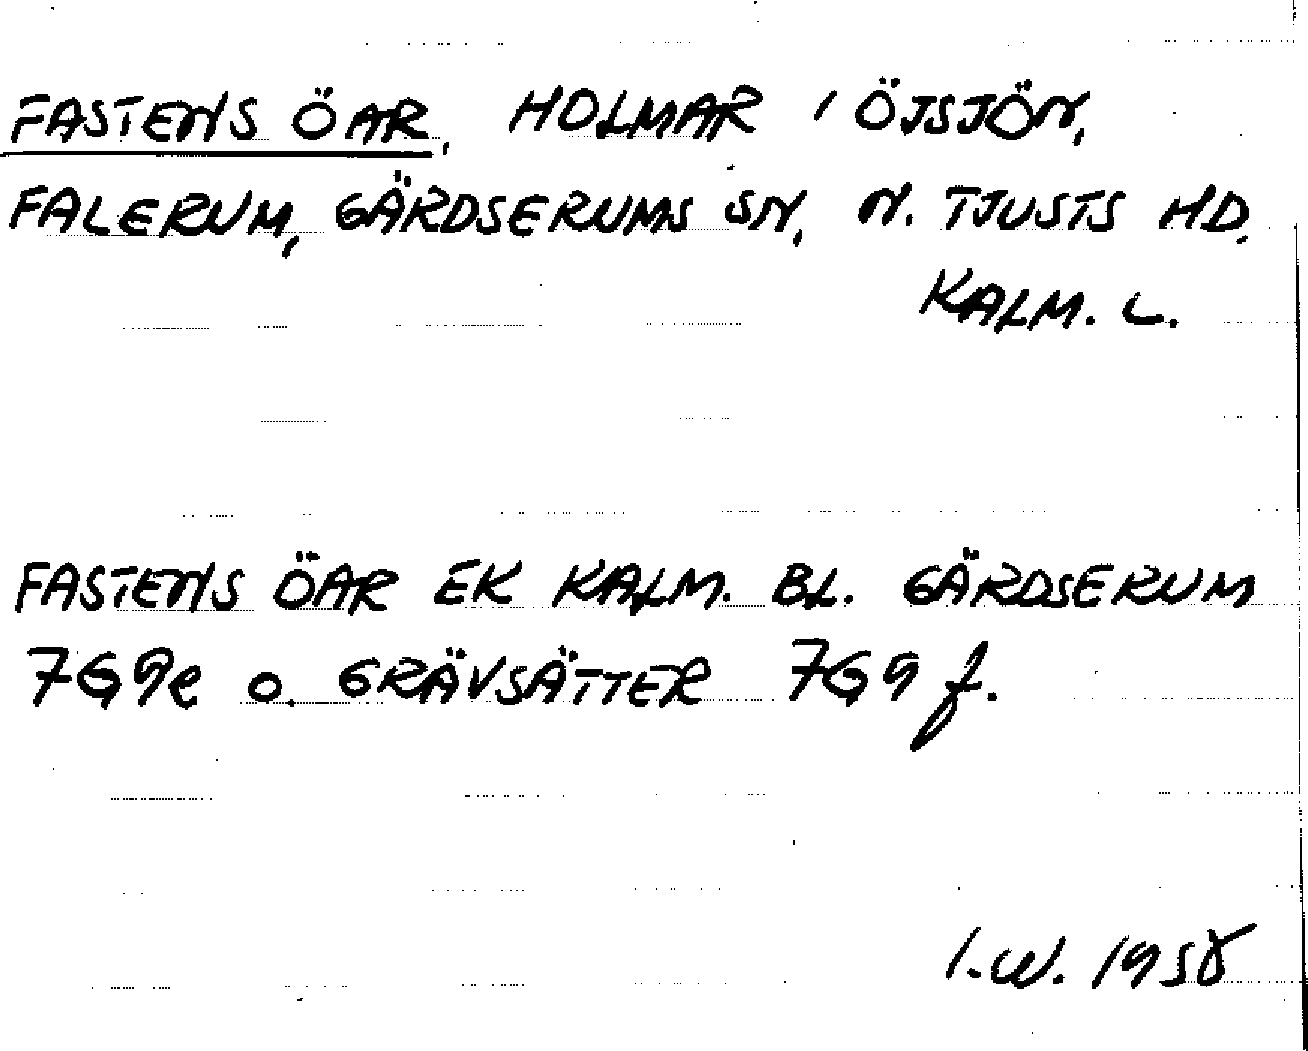 FASTENS ÖAR, HOLMAR I ÖJSJÖN,
FALERUM, GÄRDSERUMS SN, N. TJUSTS HD.
KALM. L.
FASTENS ÖAR EK KALM. BL. GÄRDSERUM
7G9e O. GRÄVSÄTTER 7G9f.
I.W. 1958